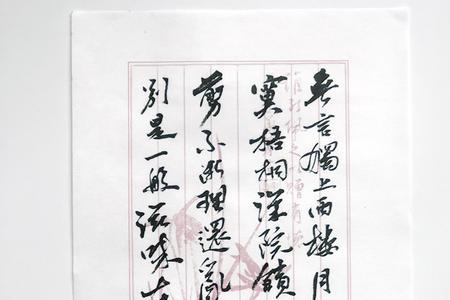 无言獨上西樓月
寞梧桐深院鎖
剪不斷理還亂
別是一般滋味在